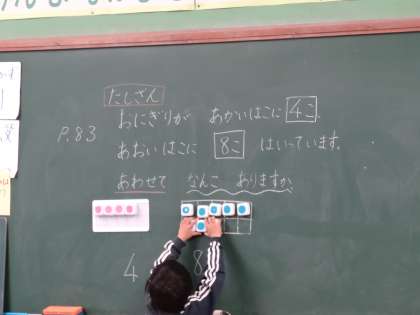 たしざん
P.83
おにぎりが あかいはこに 4こ、
あおいはこに 8こ はいっています。
あわせて なんこ ありますか
4 8